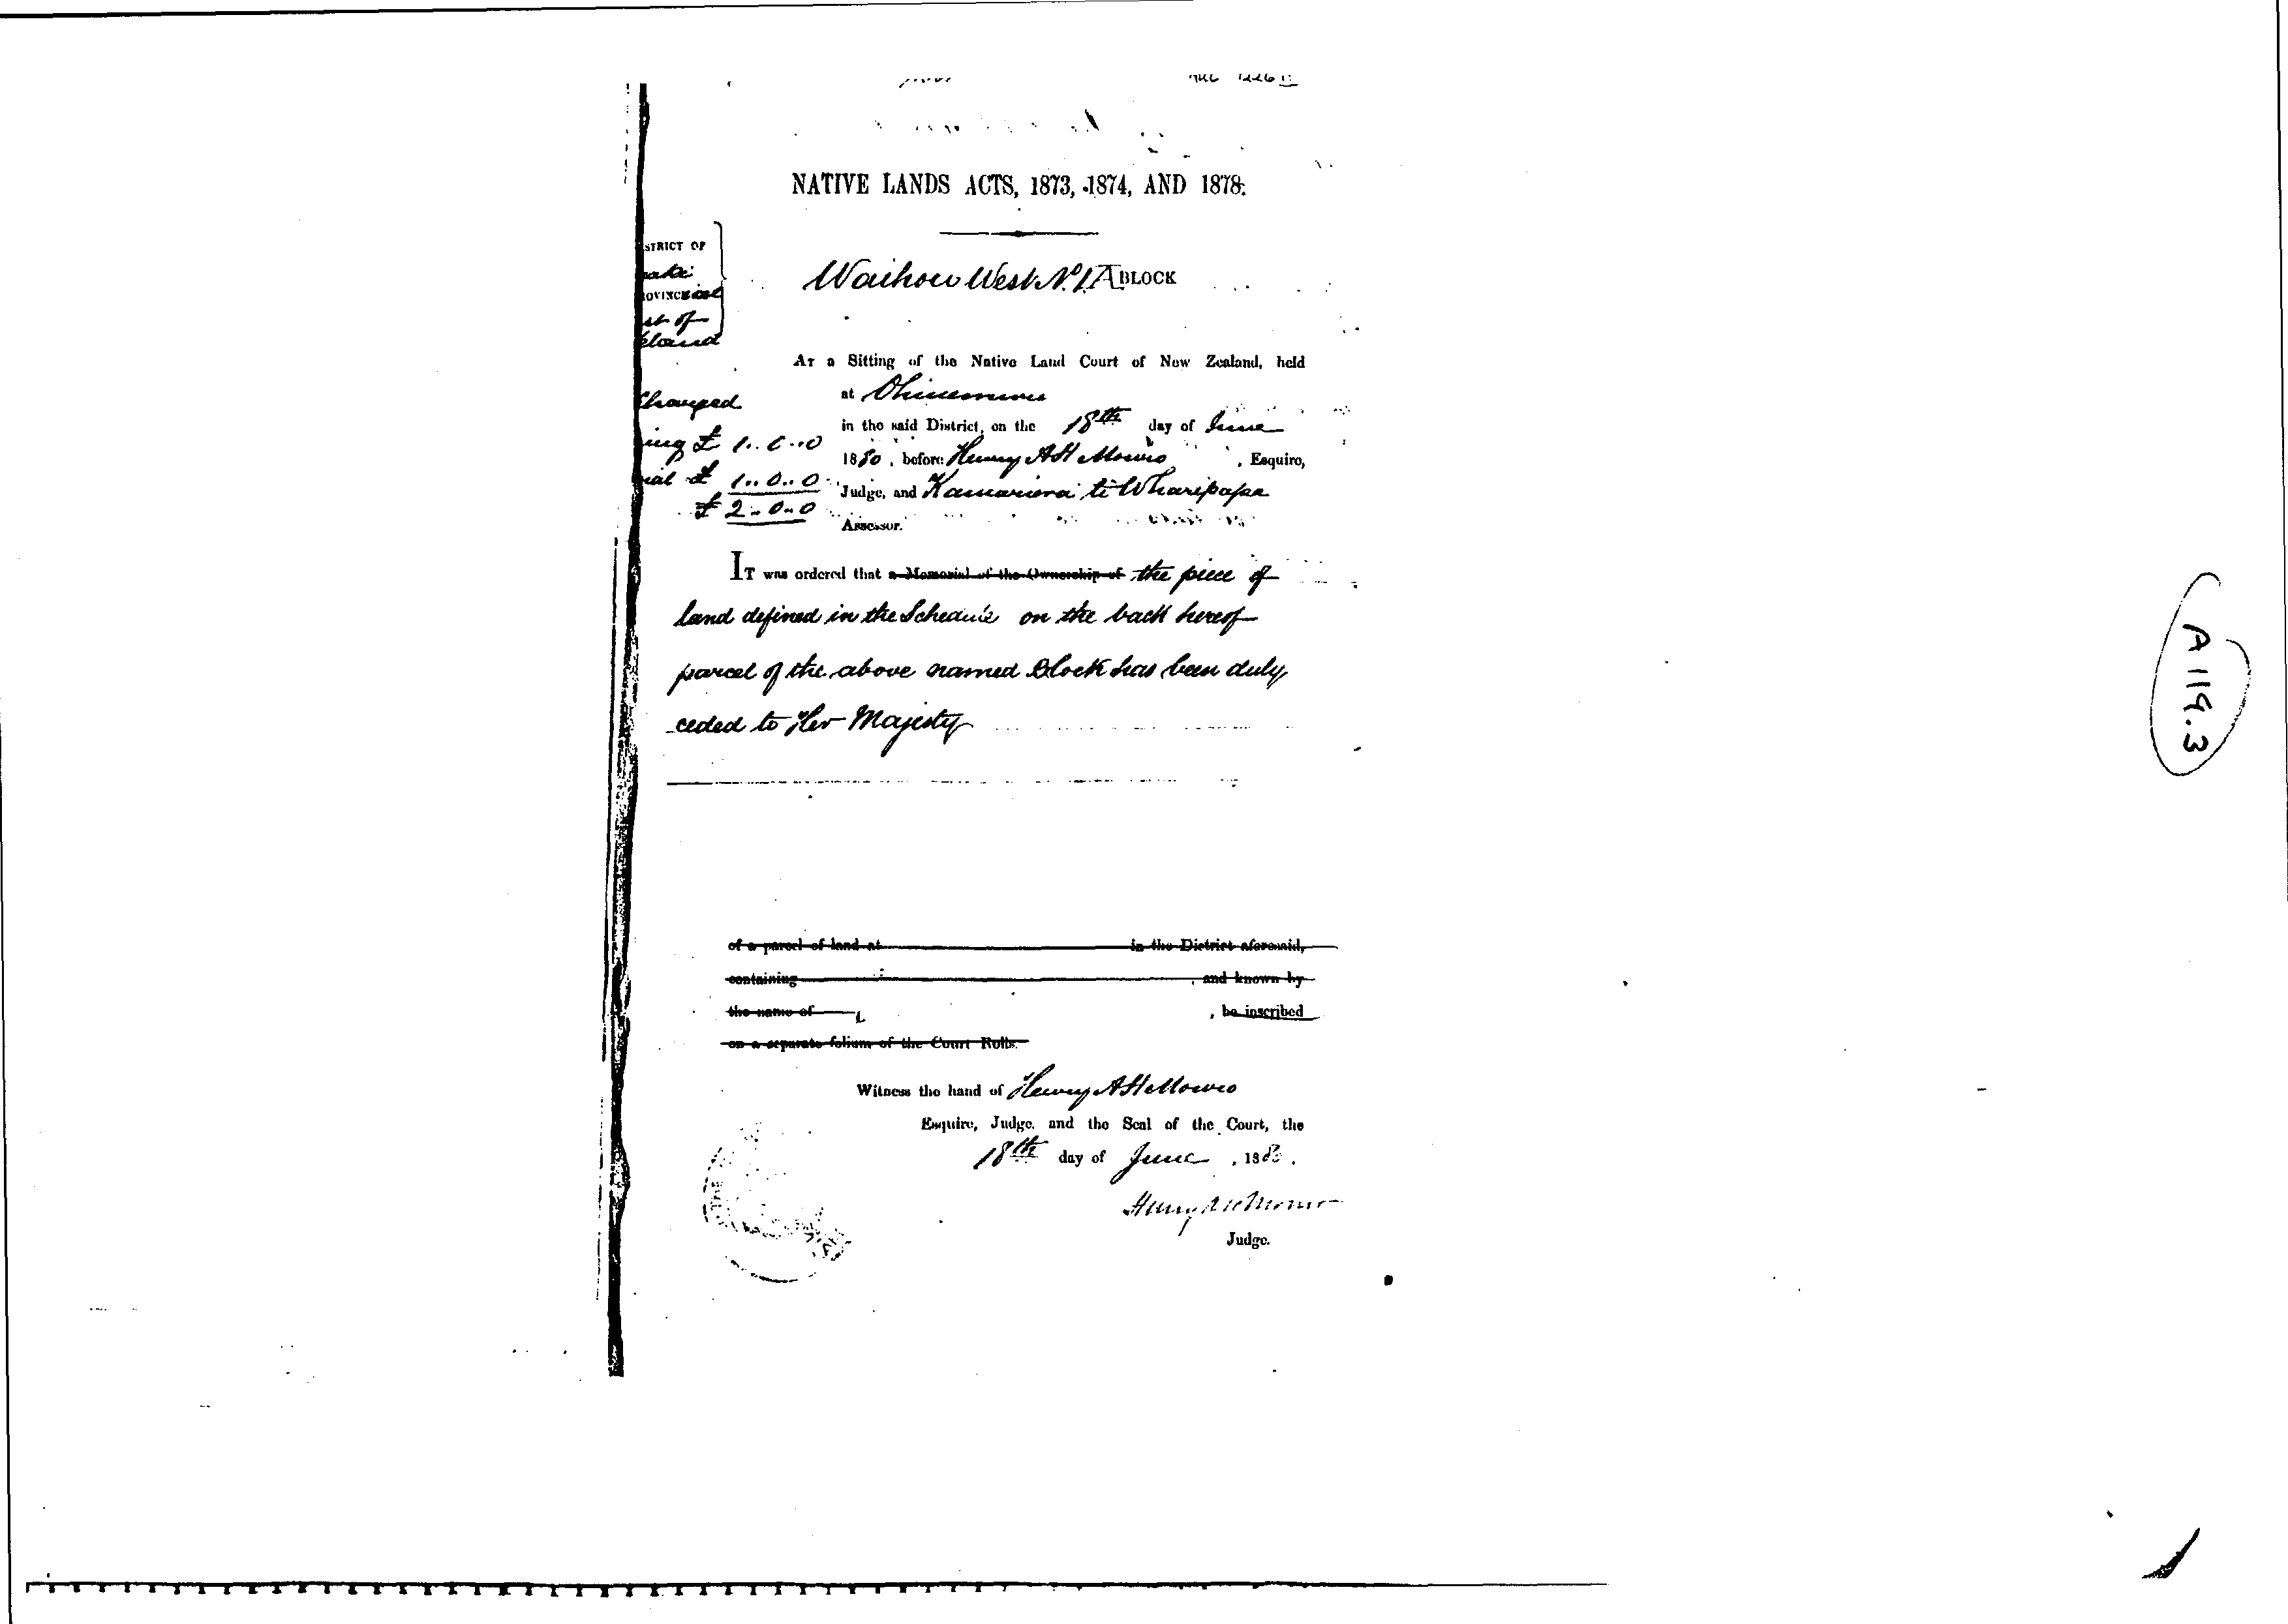 NATIVE LANDS ACTS, 1873, 1874, AND 1878.
STRICT OF
Waihou West No. 1A BLOCK
st of
land
AT a Sitting of the Native Land Court of New Zealand, held
at Ohinemuri
Charged
in the said District, on the 18th day of June
ing £ 1..0..0
1880, before Henry A H Monro, Esquire,
ial £ 1..0..0
Judge, and Kamariera te Wharepapa
£ 2..0..0
Assessor.
IT was ordered that a Memorial of the Ownership of the piece of
land defined in the Schedule on the back hereof
parcel of the above named Block has been duly
ceded to Her Majesty
of a parcel of land at in the District aforesaid,
containing , and known by
the name of , be inscribed
on a separate folium of the Court Rolls.
Witness the hand of Henry A H Monro
Esquire, Judge, and the Seal of the Court, the
18th day of June, 1880.
Henry A H Monro
Judge.
A119.3